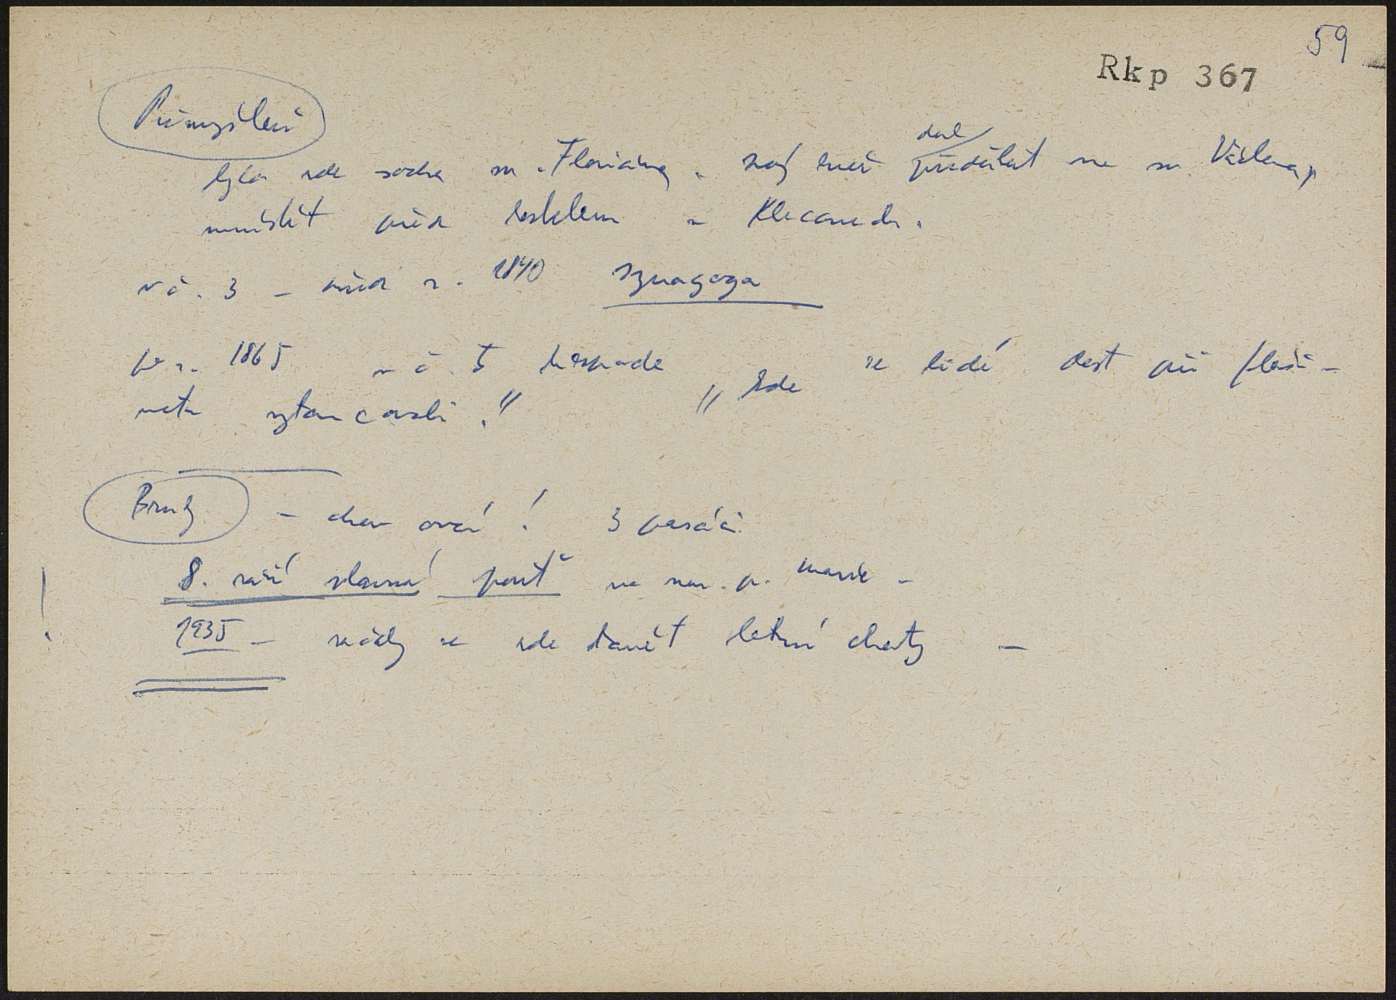 59
Rkp 367
Přemyšlení
byla zde socha sv. Floriána, dal
předělat na sv. Václava,
umístit před kostelem v Klecanech.
v č. 3 – před r. 1840 synagoga
v č. 5 hospoda „ Zde se lidé dost při flaši-
netu vytancovali."
Brnky – chov ovcí! 3 pasáci
8. září slavná pouť na nar. p. marie –
1935 – začaly se zde stavět letní chaty –